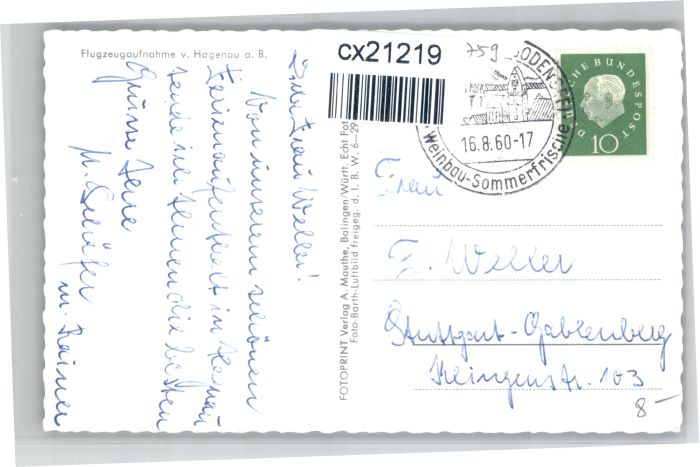 Flugzeugaufnahme v. Hagenau a. B.
Liebe Frau Weller!
Von unserem schönen
Ferienaufenthalt in Hagnau
sende ich Ihnen die besten
Grüsse Ihre
u. Rainer
FOTOPRINT Verlag A. Mauthe, Balingen/Württ. Echt Fot
Foto-Barth-Luftbild freigeg. d. I. B. W. 6-29
cx21219
759
BODENSEE
16.8.60-17
Weinbau-Sommerfrische
DEUTSCHE BUNDESPOST
10
Frau
E. Weller
Stuttgart-Gablenberg
Klingenstr. 103
8-